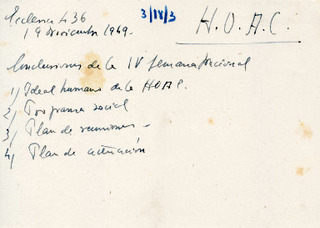 Ecclesia 436
3/IV/3
H.O.A.C.
19 noviembre 1949.
Conclusiones de la IV Semana Nacional
1) Ideal humano de la HOAC.
2) Programa social
3) Plan de reuniones -
4) Plan de actuación